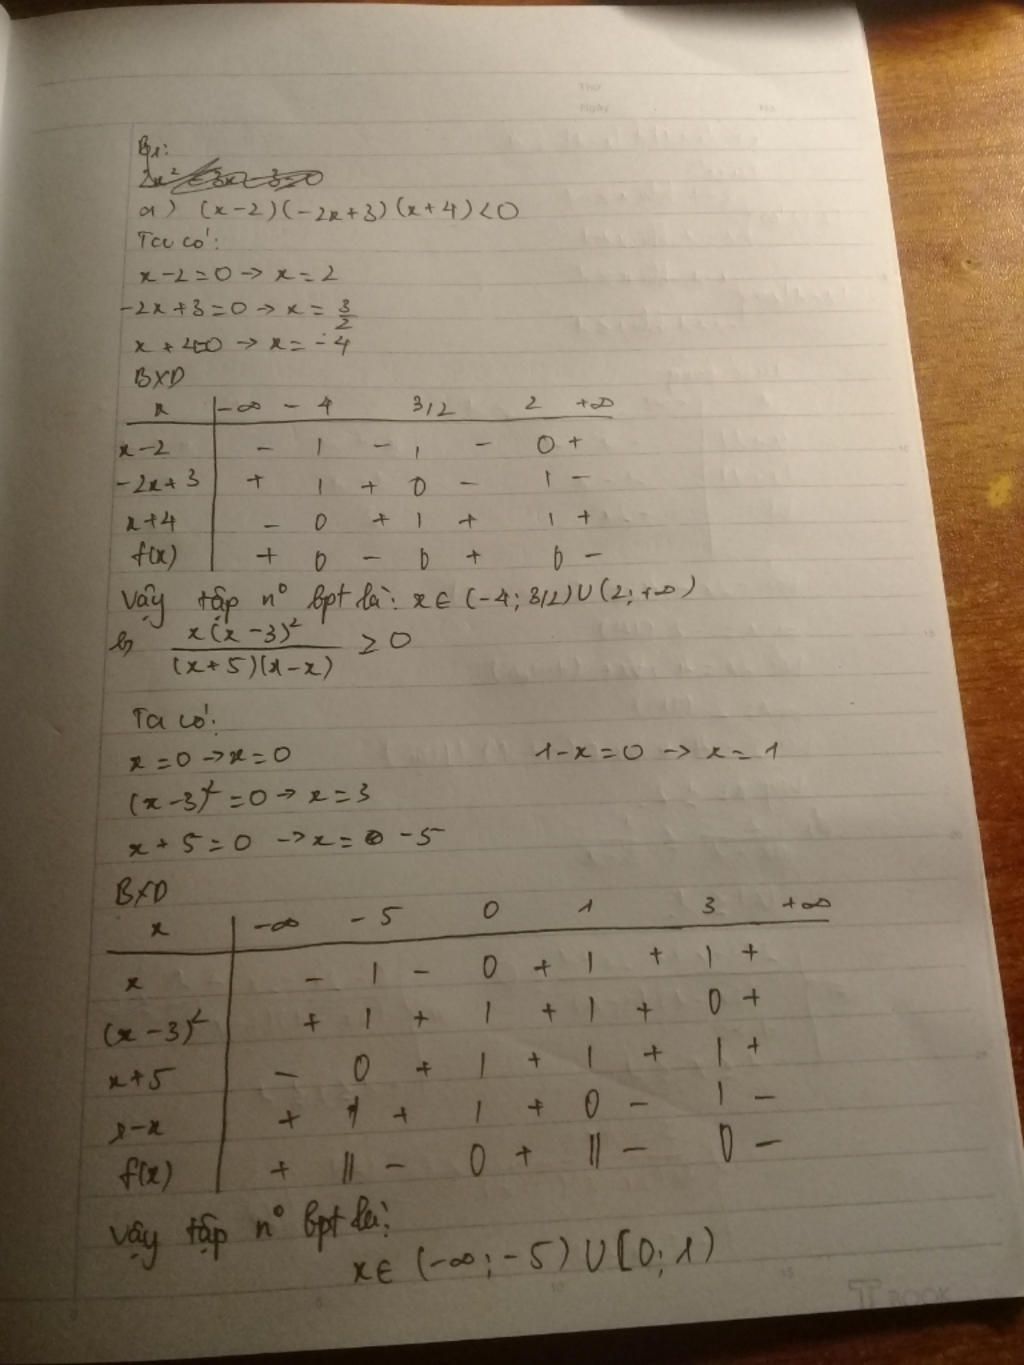 Thứ
Ngày No.
B1:
2x² - 3x - 3 = 0
a) (x-2)(-2x+3)(x+4)<0
Ta có:
x-2=0 → x=2
-2x+3=0 → x= 3/2
x+4=0 → x=-4
BXD
x | -∞ -4 3/2 2 +∞
x-2 | - | - | - 0 +
-2x+3 | + | + 0 - | -
x+4 | - 0 + | + | +
f(x) | + 0 - 0 + 0 -
Vậy tập n° bpt là: x∈(-4;3/2)∪(2;+∞)
b) x(x-3)² / (x+5)(1-x) ≥ 0
Ta có:
x=0 → x=0 1-x=0 → x=1
(x-3)²=0 → x=3
x+5=0 → x= -5
BXD
x | -∞ -5 0 1 3 +∞
x | - | - 0 + | + | +
(x-3)² | + | + | + | + 0 +
x+5 | - 0 + | + | + | +
1-x | + | + | + 0 - | -
f(x) | + || - 0 + || - 0 -
Vậy tập n° bpt là:
x∈ (-∞;-5) ∪ [0;1)
5 10 15
BOOK